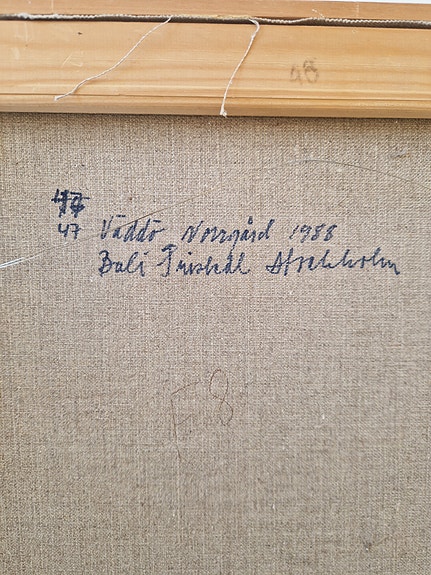 48
47 Väddö Norrgård 1988
Bali Stockholm
F8